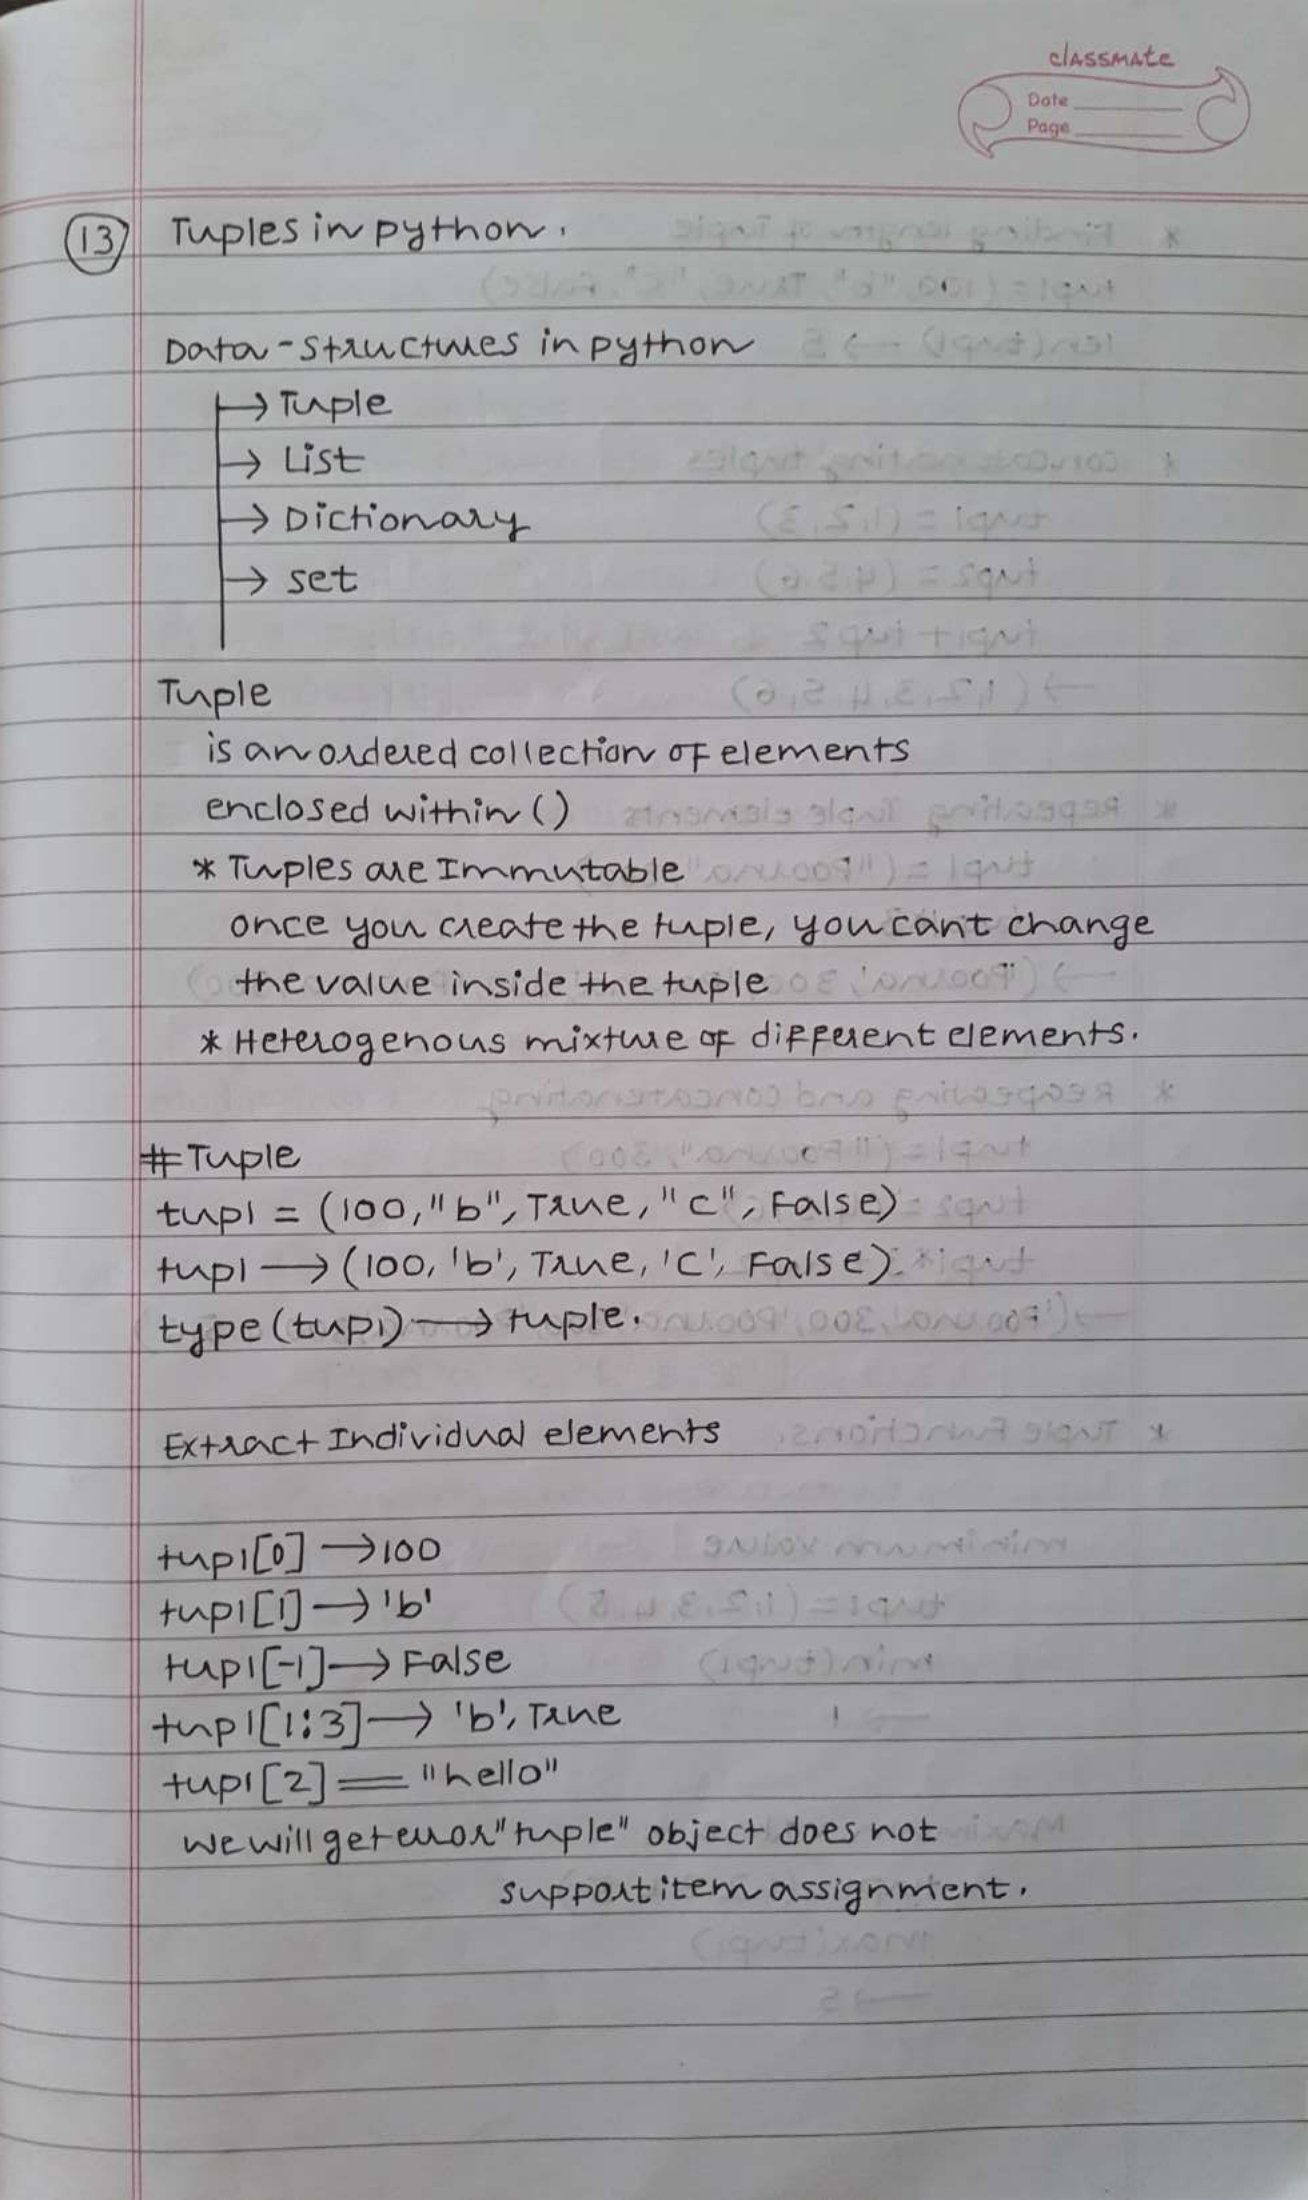 classmate
Date
Page
13 Tuples in python.
Data-structures in python
→ Tuple
→ List
→ Dictionary
→ set
Tuple
is an ordered collection of elements
enclosed within ()
* Tuples are Immutable
once you create the tuple, you can't change
the value inside the tuple
* Heterogenous mixture of different elements.
# Tuple
tup1 = (100, "b", True, "c", False)
tup1 → (100, 'b', True, 'c', False).
type(tup1) → tuple.
Extract Individual elements
tup1[0] → 100
tup1[1] → 'b'
tup1[-1] → False
tup1[1:3] → 'b', True
tup1[2] = "hello"
we will get error "tuple" object does not
support item assignment.